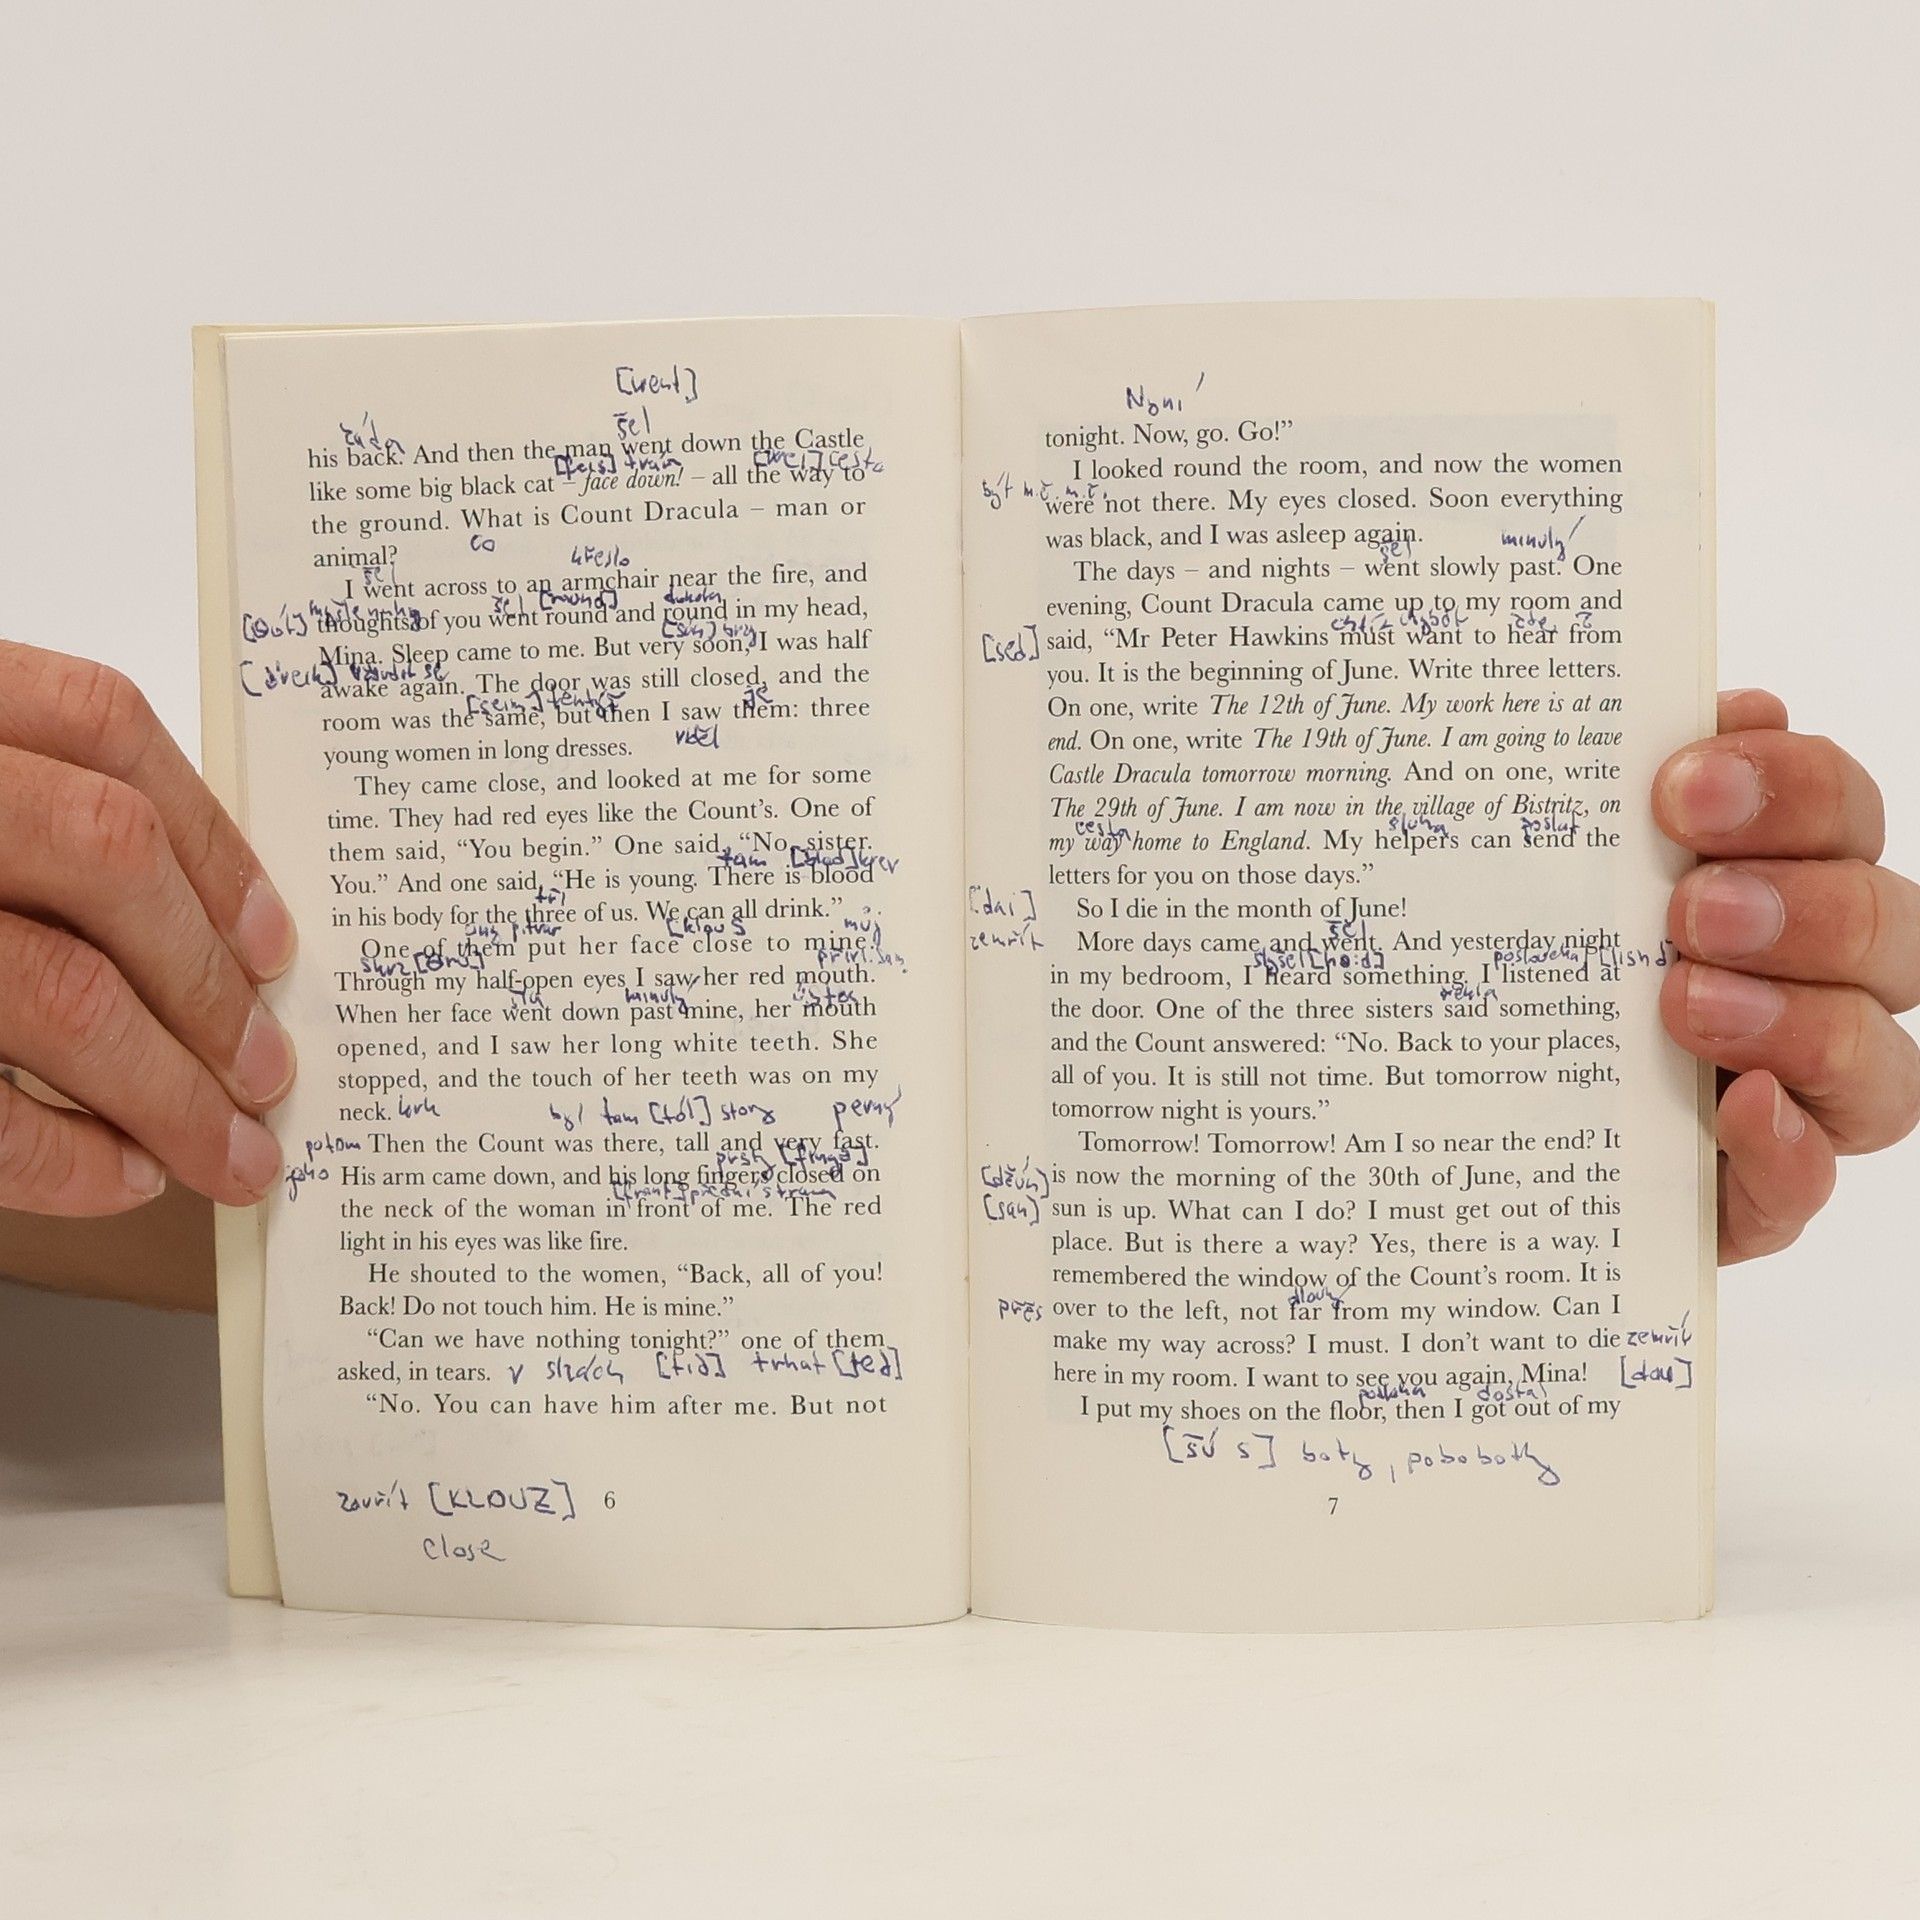 [went]
záda šel
his back. And then the man went down the Castle
[feis] tvář [wei] cesta
like some big black cat – face down! – all the way to
the ground. What is Count Dracula – man or
co
animal?
šel křeslo
I went across to an armchair near the fire, and
myšlenky šel [raund] dokola
thoughts of you went round and round in my head,
brzy
Mina. Sleep came to me. But very soon, I was half
vzbudit se
awake again. The door was still closed, and the
[seim] je
room was the same, but then I saw them: three
viděl
young women in long dresses.
They came close, and looked at me for some
time. They had red eyes like the Count's. One of
them said, “You begin.” One said, “No, sister.
tam [blad] krev
You.” And one said, “He is young. There is blood
tři
in his body for the three of us. We can all drink.”
[klous můj
One of them put her face close to mine.
skrz
Through my half-open eyes I saw her red mouth.
minulý ústa
When her face went down past mine, her mouth
opened, and I saw her long white teeth. She
stopped, and the touch of her teeth was on my
neck. krk
byl tam [tól] pevný
potom Then the Count was there, tall and very fast.
prsty
jeho His arm came down, and his long fingers closed on
[front] přední strana
the neck of the woman in front of me. The red
light in his eyes was like fire.
He shouted to the women, “Back, all of you!
Back! Do not touch him. He is mine.”
“Can we have nothing tonight?” one of them
asked, in tears. v slzách [tid] trhat [ted]
“No. You can have him after me. But not
zavřít [KLOUZ] 6
close
Nyní
tonight. Now, go. Go!”
I looked round the room, and now the women
být m.č. m.č.
were not there. My eyes closed. Soon everything
was black, and I was asleep again.
šel minulý
The days – and nights – went slowly past. One
evening, Count Dracula came up to my room and
[sed] said, “Mr Peter Hawkins must want to hear from
you. It is the beginning of June. Write three letters.
On one, write The 12th of June. My work here is at an
end. On one, write The 19th of June. I am going to leave
Castle Dracula tomorrow morning. And on one, write
The 29th of June. I am now in the village of Bistritz, on
cesta sluha poslat
my way home to England. My helpers can send the
letters for you on those days.”
[dai] So I die in the month of June!
šel
zemřít More days came and went. And yesterday night
slyšel [hə:d]
in my bedroom, I heard something. I listened at
řekla
the door. One of the three sisters said something,
and the Count answered: “No. Back to your places,
all of you. It is still not time. But tomorrow night,
tomorrow night is yours.”
Tomorrow! Tomorrow! Am I so near the end? It
is now the morning of the 30th of June, and the
[san] sun is up. What can I do? I must get out of this
place. But is there a way? Yes, there is a way. I
remembered the window of the Count's room. It is
dlouhý
přes over to the left, not far from my window. Can I
make my way across? I must. I don't want to die zemřít
here in my room. I want to see you again, Mina! [dai]
podlaha dostal
I put my shoes on the floor, then I got out of my
[šú s] boty, poboboty
7